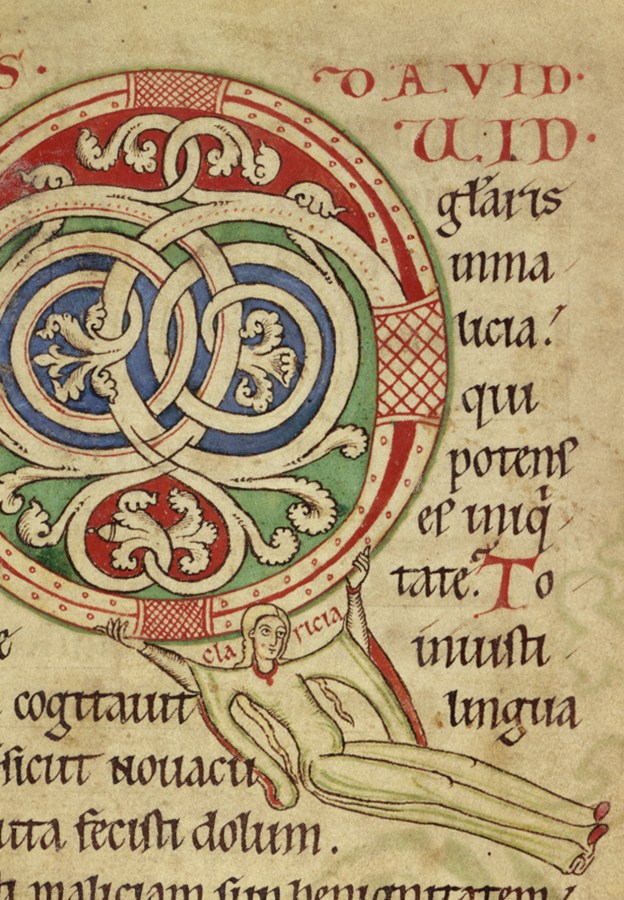 S.
DAVID.
QUID.
gl̄aris
inma
licia!
qui
potens
es iniq̇
tate. To
cla ricia
inuisti
cogitauit
lingua
sicut nouacu
fecisti dolum.
maliciam sup benignitatem